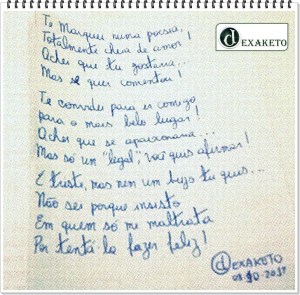 DEXAKETO
Te Marquei numa poesia,
Totalmente cheia de amor!
Achei que tu gostaria...
Mas se quer comentou!
Te convidei para ir comigo
para o mais belo lugar!
Achei que se apaixonaria...
Mas só um "legal" você quis afirmar!
É triste, mas nem um beijo tu quis...
Não sei porque insisto
Em quem só me maltrata
Por tentá-la fazer feliz!
DEXAKETO